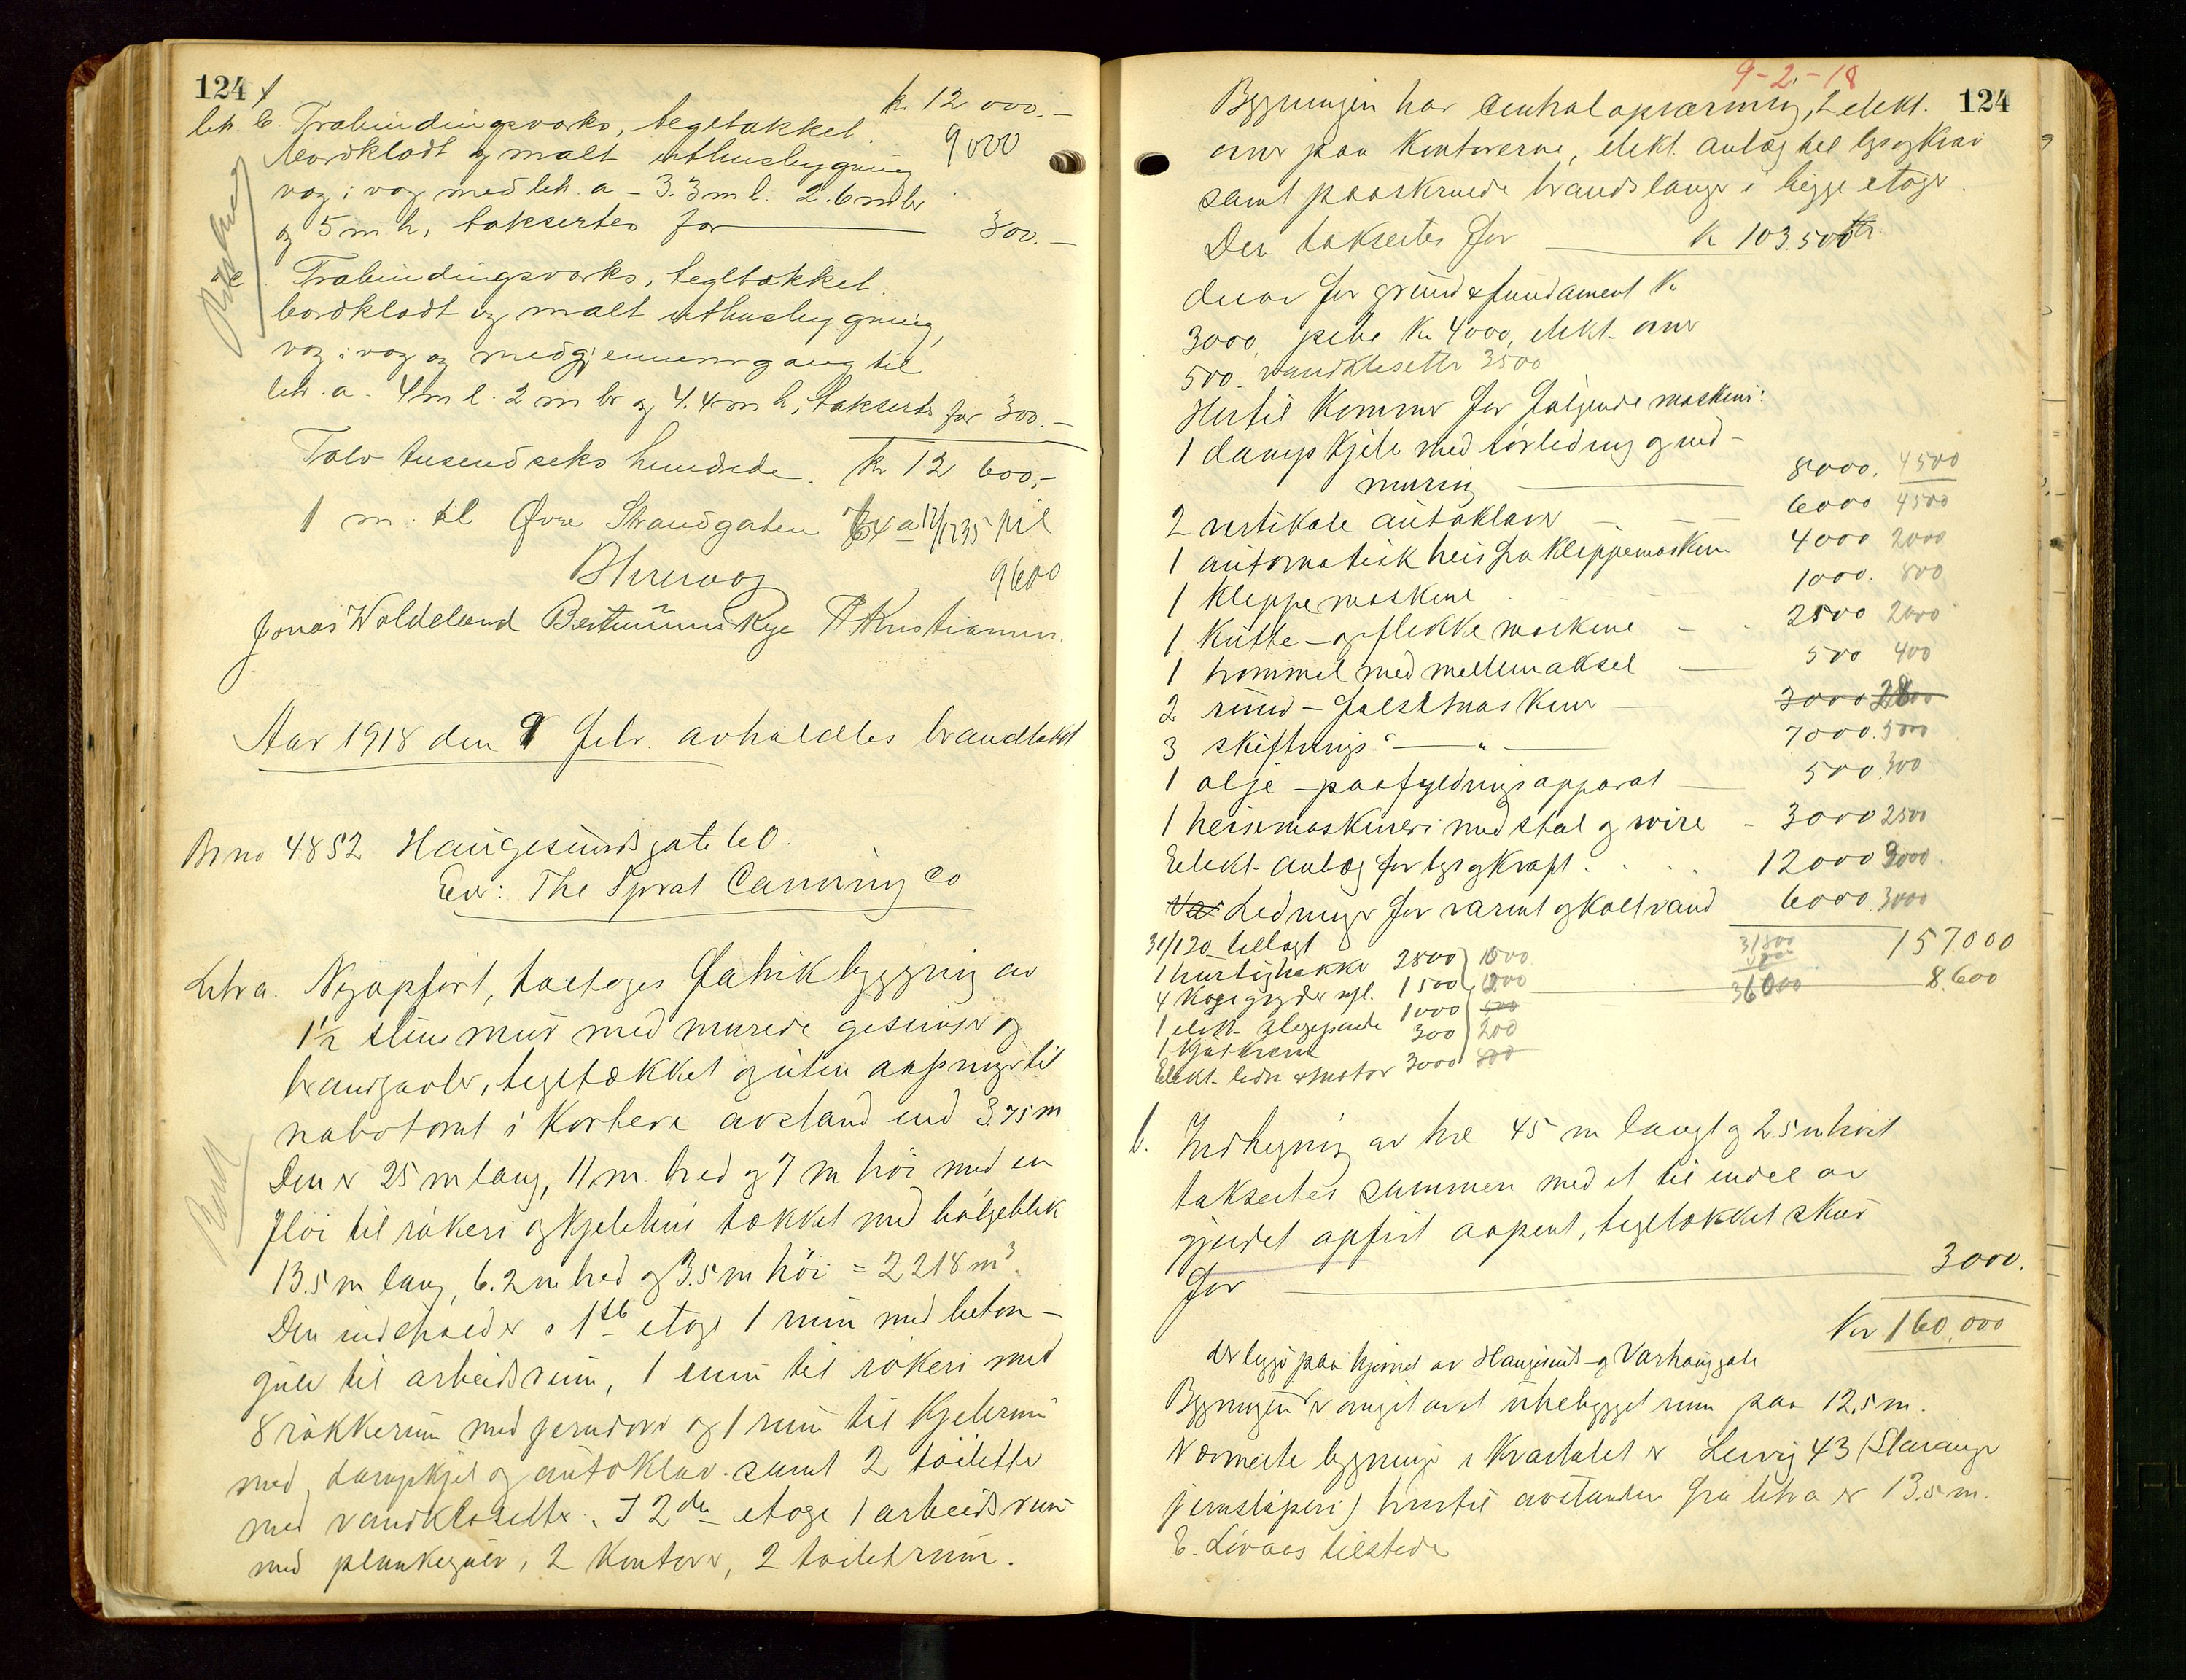 124
k. 12 000.-
litr. b. Træbindingsverks, tegltækket
9000
bordklædt og malt uthusbygning
væg i væg med litr. a - 3.3 m l. 2.6 m br
og 5 m h, taksertes for 300.-
" c. Træbindingsverks, tegltækket
bordklædt og malt uthusbygning,
væg i væg og med gjennemgang til
litr. a. 4 m l. 2 m br og 4.4 m h, takserts for 300.-
Tolv tusend seks hundrede. kr 12 600,-
1 m. til Øvre Strandgaten
9600
Jonas Woldeland Kristiansen
Aar 1918 den 9 febr. avholdtes brandtakst
Br no 4852 Haugesundsgate 60.
Eier: The Sprat Canning Co
Litr a. Nyopført, toetages fabrikbygning av
1½ stens mur med murede gesimser og
brandgavler, tegltækket og uten aapninger til
nabotomt i kortere avstand end 3.75 m
Den er 25 m lang, 11 m. bred og 7 m høi med en
fløi til røkeri og kjelehus tækket med bølgeblik
13.5 m lang, 6.2 m bred og 3.5 m høi = 2218 m³.
Den indeholder i 1ste etage 1 rum med beton-
gulv til arbeidsrum, 1 rum til røkeri med
8 røkkerum med jerndører og 1 rum til kjelerum
med dampkjel og autoklav samt 2 toiletter
med vandklosetter. I 2den etage 1 arbeidsrum
med plankegulv, 2 kontorer, 2 toiletrum.
9-2-18
124
Bygningen har centralopvarming, 2 elekt.
ovner paa kontorerne, elekt. anlæg til lys og kraft
samt paaskruede brandslanger i begge etager.
Den taksertes for kr 103.500
derav for grund & fundament kr
3000, pipe kr 4000, elekt. ovner
500. vandklosetter 3500
Hertil kommer for følgende maskiner:
1 dampkjele med rørledning og ind-
muring 8000. 4500
2 vertikale autoklaver 6000 4500
1 automatisk heis fra klippemaskin 4000 2000
1 klippemaskine 1000. 800
1 kutte- og flekkemaskine 2500 2000
1 trommel med mellemaksel 500 400
2 rund-falsemaskiner 3000
3 skiftnings- " 7000. 5000
1 olje-paafyldningsapparat 500. 300
1 heisemaskineri med stol og wire 3000 2500
Elekt. anlæg for lys og kraft 12000 9000
Ledninger for varmt og koldt vand 6000. 3000
157.000
31800
36000
8.600
31/1 20 tillagt
1 hurtighakke 2800
4 kogegryder 1500
1 elekt. 1000
300 200
Elekt. ledn & motor 3000
b. Indhegning av træ 45 m langt og 2.5 m høit
taksertes sammen med et til endel av
gjerdet opført aapent, tegltækket skur
for 3000.
Kr 160.000
der ligger paa hjørnet av Haugesunds- og Varhauggate
Bygningen er omgit av et ubebygget rum paa 12.5 m.
Nærmeste bygning i kvartalet er Lervig 43 (Stavanger
jernstøperi) hvortil avstanden fra litr a er 13.5 m.
E. Lövaas tilstede